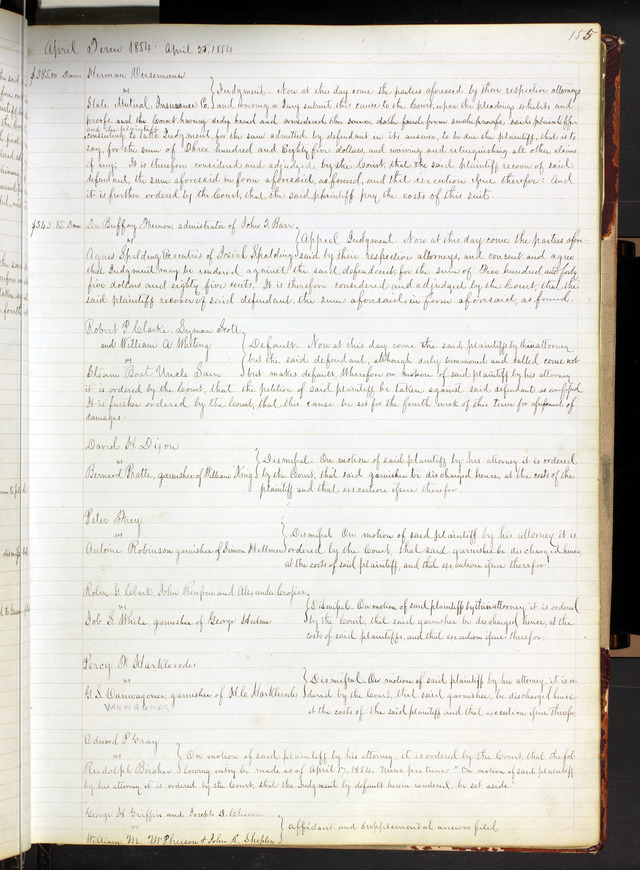 155
April Term 1854. April 25, 1854
$385.00 Dam
Herman
vs
State Mutual Insurance Co.
Judgment. Now at this day come the parties aforesaid by their respective attorneys
and waiving a Jury submit this cause to the Court, upon the pleadings exhibits and
proofs, and the Court having duly heard and considered the same, doth find from such proofs, said plaintiff
and the plaintiff
consenting to take Judgment for the sum admitted by defendant in its answer, to be due the plaintiff, that is to
say, for the sum of Three hundred and Eighty five dollars, and waiving and relinquishing all other claims
if any; It is therefore considered and adjudged by the Court, that the said plaintiff recover of said
defendant, the sum aforesaid in form aforesaid, as found, and that execution issue therefor: And
it is further ordered by the Court, that the said plaintiff pay the costs of this suit.
$345.85 Dam
De Buffay Fremon, administrator of John T. Barr
vs
Agnes Spalding Executrix of Josiah Spalding
Appeal Judgment. Now at this day come the parties afore
said by their respective attorneys, and consent and agree
that Judgment may be rendered against the said defendant, for the sum of Three hundred and forty
five dollars and eighty five cents. It is therefore considered and adjudged by the Court, that the
said plaintiff recover of said defendant, the sum aforesaid in form aforesaid, as found.
Robert P. Clarke, Lyman Scott
and William A. Whiting
vs
Steam Boat Uncle Sam
Default. Now at this day come the said plaintiffs by their attorney
but the said defendant, although duly summoned and called come not
but makes default, Wherefore on motion of said plaintiff by his attorney
it is ordered by the Court, that the petition of said plaintiff be taken against said defendant as confessed
It is further ordered by the Court, that this cause be set for the fourth week of this term for assessment of
damages.
David H. Dixon
vs
Bernard Pratte, garnishee of William King
Dismissal. On motion of said plaintiff by his attorney it is ordered
by the Court, that said garnishee be discharged hence, at the costs of the
plaintiff and that execution issue therefor.
Peter
vs
Antoine Robinson garnishee of Simon
Dismissal On motion of said plaintiff by his attorney it is
ordered by the Court, that said garnishee be discharged hence,
at the costs of said plaintiff, and that execution issue therefor.
Robin G. Clark, John Renfrew and Alexander Crosier
vs
Job S. White, garnishee of George Hulme
Dismissal. On motion of said plaintiff by their attorney it is ordered
by the Court, that said garnishee be discharged hence, at the
costs of said plaintiffs, and that execution issue therefor.
Percy F. Harklerodes
vs
G. S. Vanwagoner, garnishee of H. C. Harklerodes
VANWAGONER
Dismissal. On motion of said plaintiff by his attorney, it is or-
dered by the Court, that said garnishee, be discharged hence
at the costs of the said plaintiff and that execution issue therefor
Edward P. Gray
vs
Rudolph Bircher
On motion of said plaintiff by his attorney, it is ordered by the Court, that the fol-
lowing entry be made as of April 17, 1854. Nunc pro tunc: "On motion of said plaintiff
by his attorney it is ordered by the Court, that the Judgment by default herein rendered, be set aside"
George H. Griffin and Joseph D. Cheever
vs
William M. McPherson & John R. Shepley
Affidavit and supplemental answer filed.